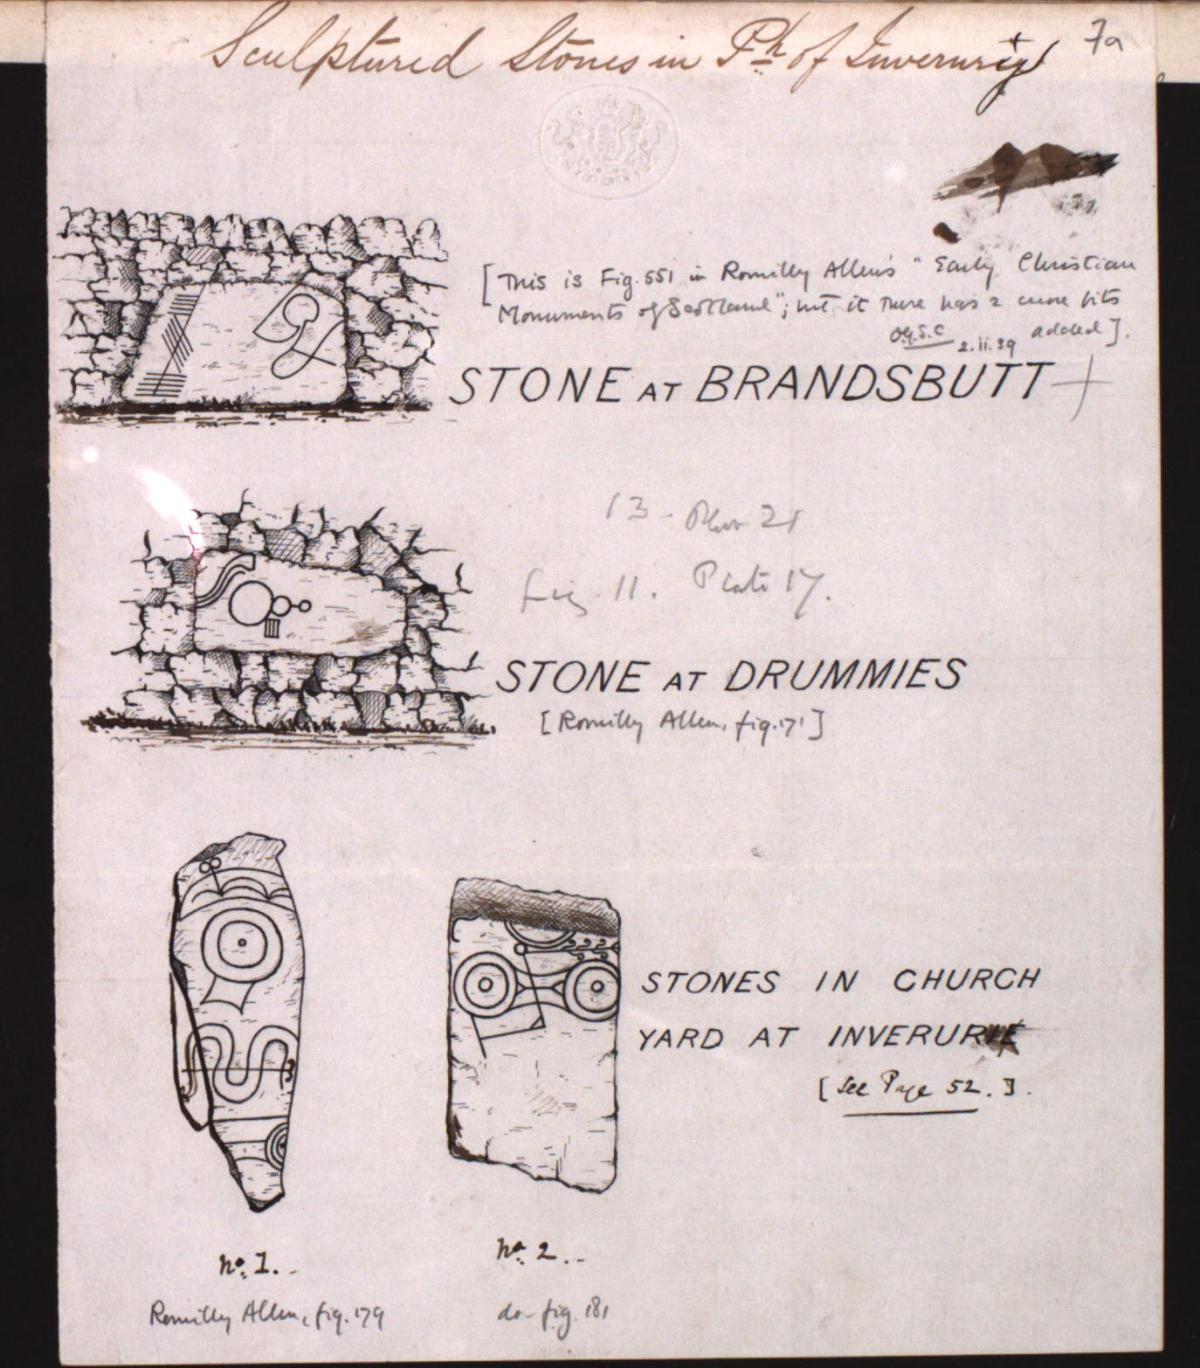 Sculptured Stones in Ph. of Inverury
7a
[This is Fig. 551 in Romilly Allen's "Early Christian
Monuments of Scotland"; but it there has 2 more bits
added].
O.G.S.C 2.11.39
STONE AT BRANDSBUTT
13 - 21
Fig. 11. Plate 17.
STONE AT DRUMMIES
[Romilly Allen, fig. 171]
STONES IN CHURCH
YARD AT INVERURIE
[See Page 52.].
No. 1.
No. 2.
Romilly Allen, fig. 179
do fig. 181